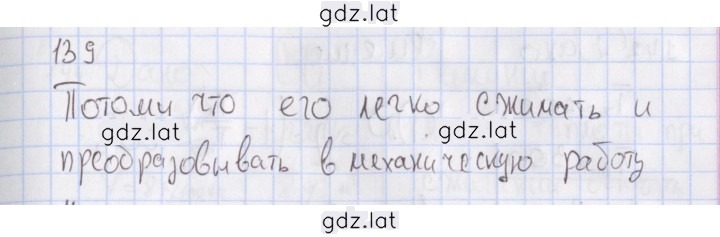 gdz.lat
139
Потому что его легко сжимать и
gdz.lat gdz.lat
преобразовывать в механическую работу
gdz.lat